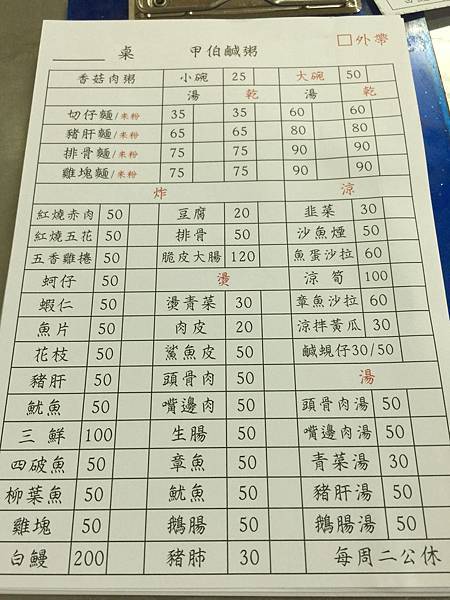 桌 甲伯鹹粥 □外帶
香菇肉粥 小碗 25 大碗 50
湯 乾 湯 乾
切仔麵/米粉 35 35 60 60
豬肝麵/米粉 65 65 80 80
排骨麵/米粉 75 75 90 90
雞塊麵/米粉 75 75 90 90
炸 涼
紅燒赤肉 50 豆腐 20 韭菜 30
紅燒五花 50 排骨 50 沙魚煙 50
五香雞捲 50 脆皮大腸 120 魚蛋沙拉 60
蚵仔 50 燙 涼筍 100
蝦仁 50 燙青菜 30 章魚沙拉 60
魚片 50 肉皮 20 涼拌黃瓜 30
花枝 50 鯊魚皮 50 鹹蜆仔30/50
豬肝 50 頭骨肉 50 湯
魷魚 50 嘴邊肉 50 頭骨肉湯 50
三鮮 100 生腸 50 嘴邊肉湯 50
四破魚 50 章魚 50 青菜湯 30
柳葉魚 50 魷魚 50 豬肝湯 50
雞塊 50 鵝腸 50 鵝腸湯 50
白鰻 200 豬肺 30 每周二公休